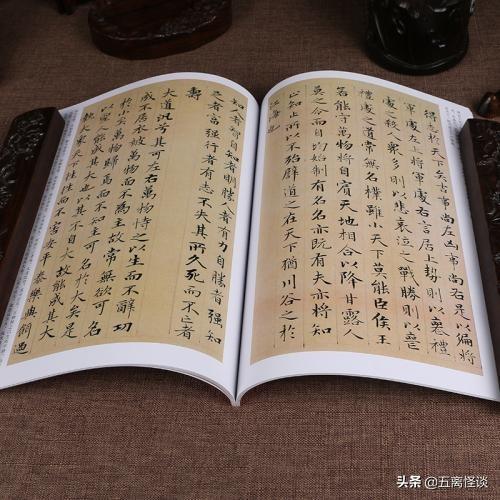 得志於天下矣古事尚左凶事尚右是以偏將
軍處左上將軍處右言居上勢則以喪禮
處之殺人衆多則以悲哀泣之戰勝則以喪
禮處之道常無名樸雖小天下莫能臣侯王
若能守萬物將自賓天地相合以降甘露人
莫之令而自均始制有名名亦既有夫亦將
止知止所以不殆譬道之在天下猶川谷之於
江海也
知人者智自知者明勝人者有力自勝者强知
足者富强行者有志不失其所久死而不亡者
壽
大道汎兮其可左右萬物恃之以生而不辭功
成不居衣被萬物而不為主故常無欲可名
於小矣萬物歸焉而不知主可名於大矣是
以聖人能成其大也以其不自大故能成其大
執大象天下往往而不害安平泰樂與餌過
头条 @五离怪谈